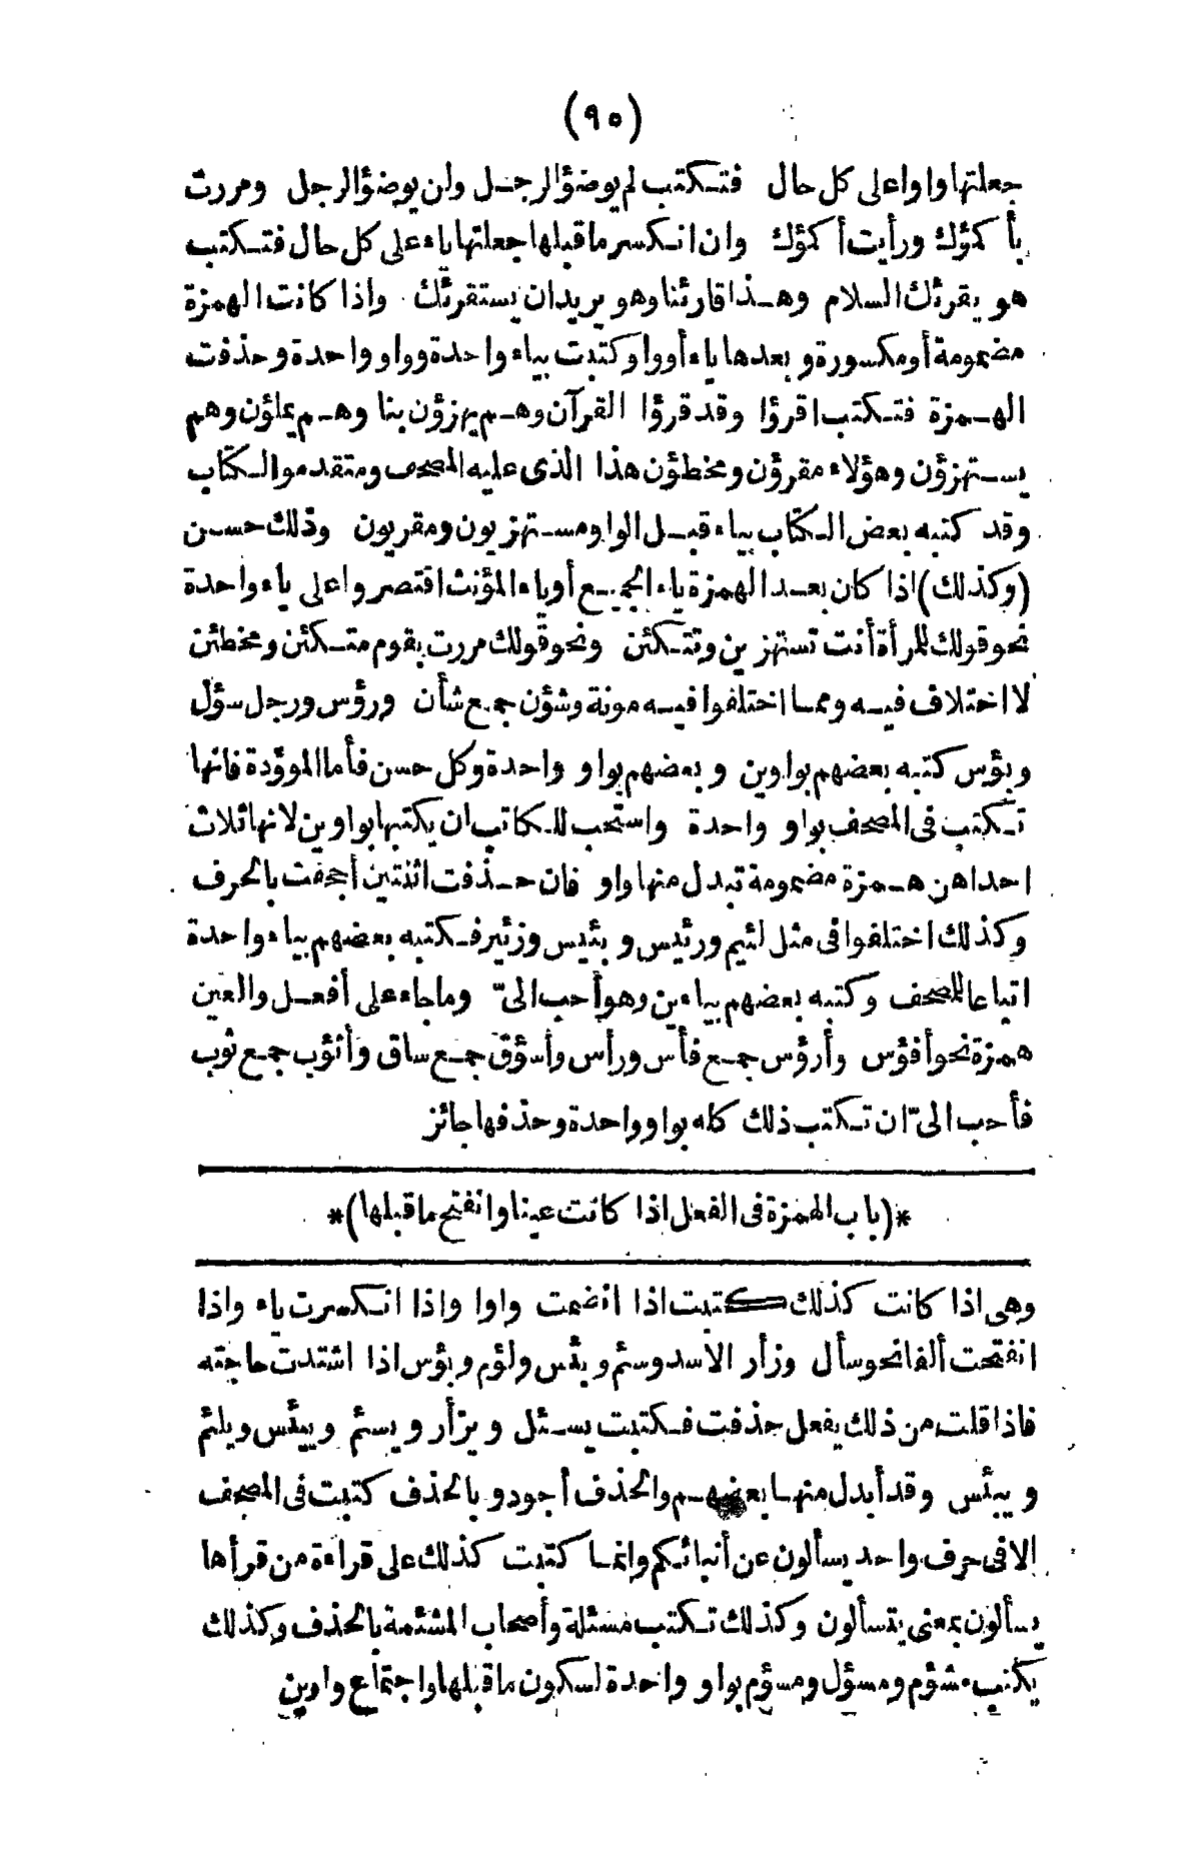 (٩٥)
جعلتها واوا على كل حال فتكتب لم يوضؤ الرجل ولن يوضؤ الرجل ومررت
بأكمؤك ورأيت أكمؤك وان انكسر ما قبلها جعلتها ياء على كل حال فتكتب
هو يقرئك السلام وهذا قارئنا وهو يريد ان يستقرئك واذا كانت الهمزة
مضمومة أو مكسورة وبعدها ياء أو واو كتبت بياء واحدة وواو واحدة وحذفت
الهمزة فتكتب اقرؤا وقد قرؤا القرآن وهم يهزؤن بنا وهم يملؤن وهم
يستهزؤن وهؤلاء مقرؤن ومخطؤن هذا الذى عليه المصحف ومتقدمو الكتاب
وقد كتبه بعض الكتاب بياء قبل الواو مستهزيون ومقريون وذلك حسن
(وكذلك) اذا كان بعد الهمزة ياء الجميع أو ياء المؤنث اقتصروا على ياء واحدة
نحو قولك للمرأة أنت تستهزين وتتكئن ونحو قولك مررت بقوم متكئن ومخطئن
لا اختلاف فيه ومما اختلفوا فيه مونة وشؤن جمع شأن ورؤس ورجل سؤل
وبؤس كتبه بعضهم بواوين وبعضهم بواو واحدة وكل حسن فأما الموؤدة فانها
تكتب فى المصحف بواو واحدة واستحب للكاتب ان يكتبها بواوين لانها ثلاث
احداهن همزة مضمومة تبدل منها واو فان حذفت اثنتين أجحفت بالحرف
وكذلك اختلفوا فى مثل لئيم ورئيس وبئيس وزئير فكتبه بعضهم بياء واحدة
اتباعا للمصحف وكتبه بعضهم بياءين وهو أحب الىّ وما جاء على أفعل والعين
همزة نحو أفؤس وأرؤس جمع فأس ورأس وأسؤق جمع ساق وأثؤب جمع ثوب
فأحب الىّ ان تكتب ذلك كله بواو واحدة وحذفها جائز
*(باب الهمزة فى الفعل اذا كانت عينا وانفتح ما قبلها)*
وهى اذا كانت كذلك كتبت اذا انضمت واوا واذا انكسرت ياء واذا
انفتحت ألفا نحو سأل وزأر الاسد وسئم وبئس ولؤم وبؤس اذا اشتدت حاجته
فاذا قلت من ذلك يفعل حذفت فكتبت يسئل ويزأر ويسئم وييئس ويلئم
ويبئس وقد أبدل منها بعضهم والحذف أجود وبالحذف كتبت فى المصحف
الا فى حرف واحد يسألون عن أنبائكم وانما كتبت كذلك على قراءة من قرأها
يسألون بمعنى يتسألون وكذلك تكتب مسئلة وأصحاب المشئمة بالحذف وكذلك
يكتب مشؤم ومسؤل ومسؤم بواو واحدة لسكون ما قبلها واجتماع واوين